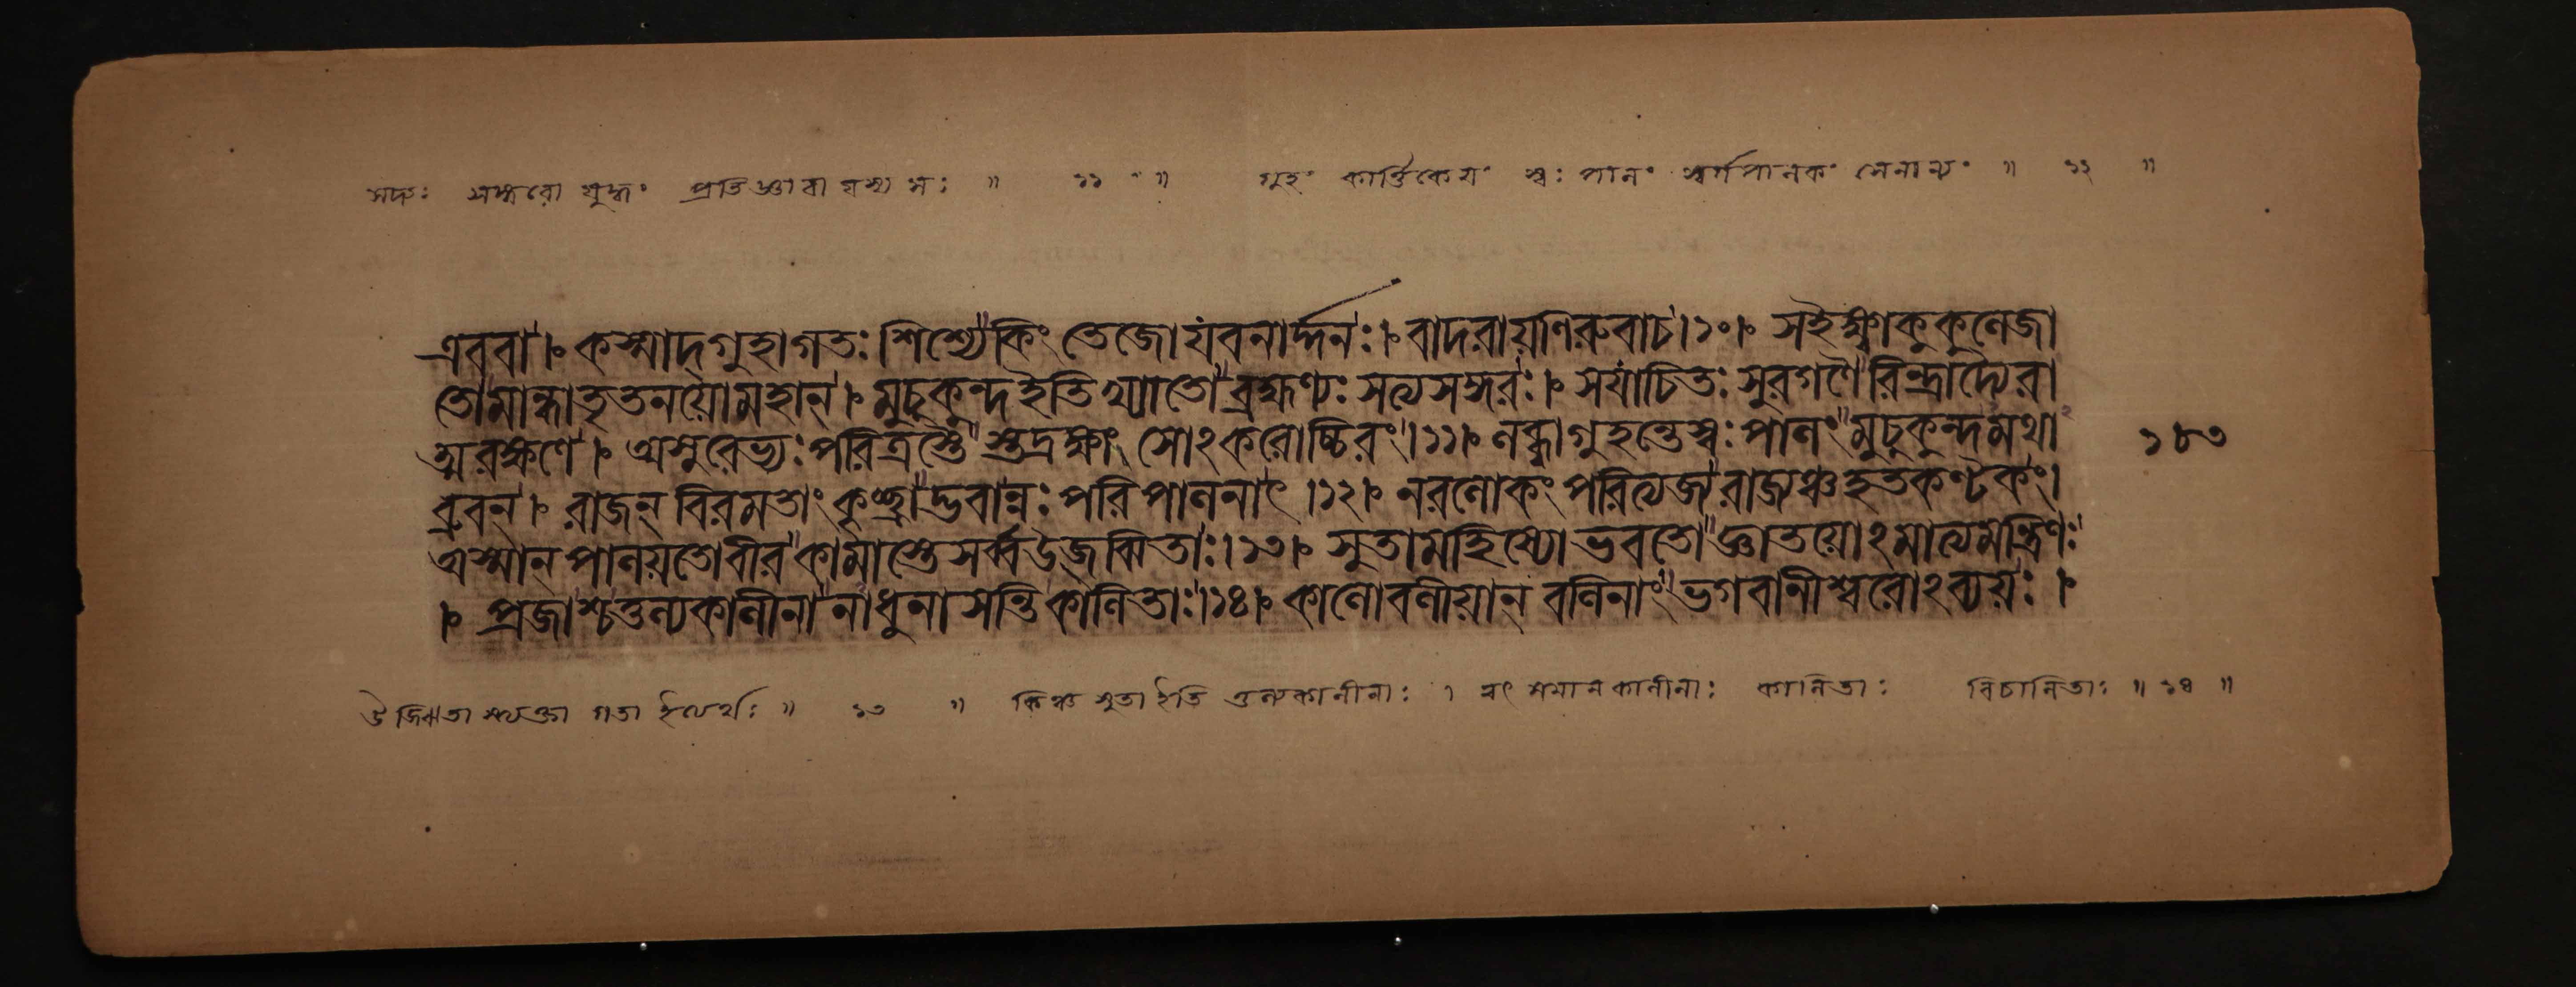 সঙ্গরো যুদ্ধং প্রতিজ্ঞা বা যস্য সঃ ॥ ১১ ॥ গুহং কার্ত্তিকেয়ং স্বঃ পালং স্বর্গপালকং লেনান্য ॥ ১২ ॥
এব বা । কস্মাদ্গুহাগতঃ শিশ্যে কিং তেজো যবনার্দ্দনঃ । বাদরায়ণিরুবাচ । ১০ । সইক্ষ্বাকুকুলেজা
তোমান্ধাতৃতনয়োমহান্ । মুচুকুন্দইতিখ্যাতো ব্রহ্মণ্যঃ সত্যসঙ্গরঃ । সযাচিতঃ সুরগণৈরিন্দ্রাদ্যৈরা
ত্মরক্ষণে । অসুরেভ্যঃ পরিত্রস্তৈ স্তদ্রক্ষাং সোঽকরোচ্চিরং । ১১ । লব্ধাগুহন্তেস্বঃ পালং মুচুকুন্দমথা
ব্রুবন্ । রাজন্ বিরমতাং কৃচ্ছ্রাদ্ভবান্নঃ পরিপালনাৎ । ১২ । নরলোকং পরিত্যজ্য রাজ্যঞ্চহতকণ্টকং ।
অস্মান্ পালয়তোবীর কামাস্তেসর্ব্বউজ্ঝিতাঃ । ১৩ । সুতামহিষ্যোভবতো জ্ঞাতয়োঽমাত্যমন্ত্রিণঃ
। প্রজাশ্চতুল্যকালীনা নাধুনা সন্তি কালিতাঃ । ১৪ । কালোবলীয়ান্ বলিনাং ভগবানীশ্বরোঽব্যয়ঃ ।
১৮৩
উজ্ঝিতা স্ত্যক্তা গতা ইত্যর্থঃ ॥ ১৩ ॥ কিঞ্চ সুতা ইতি তুল্যকালীনাঃ । ৎ সমান কালীনাঃ কালিতাঃ বিচালিতাঃ ॥ ১৪ ॥